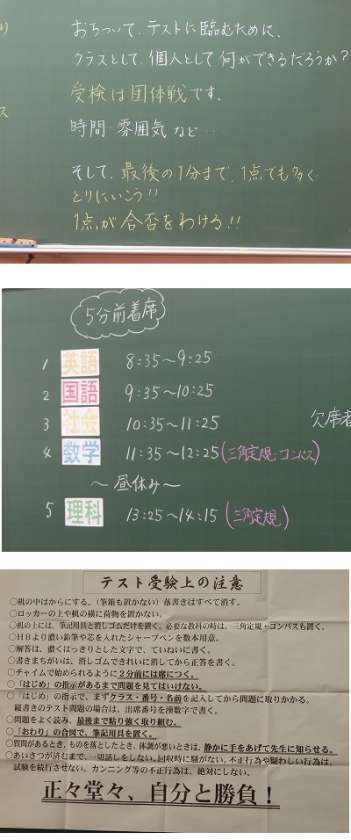 り
おちついて、テストに臨むために、
クラスとして、個人として何ができるだろうか?
ス
受検は団体戦です。
時間 雰囲気など…
そして、最後の1分まで、1点でも多く
とりにいこう!!
1点が合否をわける!!
5分前着席
1 英語 8:35〜9:25
2 国語 9:35〜10:25
3 社会 10:35〜11:25
欠席者
4 数学 11:35〜12:25(三角定規・コンパス)
〜昼休み〜
5 理科 13:25〜14:15(三角定規)
テスト受験上の注意
○机の中はからにする。(筆箱も置かない)落書きはすべて消す。
○ロッカーの上や机の横に荷物を置かない。
○机の上には、筆記用具と消しゴムだけを置く。必要な教科の時は、三角定規・コンパスも置く。
○HBより濃い鉛筆や芯を入れたシャープペンを数本用意。
○解答は、濃くはっきりとした文字で、ていねいに書く。
○書きまちがいは、消しゴムできれいに消してから正答を書く。
○チャイムで始められるように2分前には席につく。
○「はじめ」の指示があるまで問題を見てはいけない。
○「はじめ」の指示で、まずクラス・番号・名前を記入してから問題に取りかかる。
縦書きのテスト問題の場合は、出席番号を漢数字で書く。
○問題をよく読み、最後まで粘り強く取り組む。
○「おわり」の合図で、筆記用具を置く。
○質問があるとき、ものを落としたとき、体調が悪いときは、静かに手をあげて先生に知らせる。
○あいさつが済むまで、一切話しをしない。回収時に騒がない。不正行為や疑わしい行為は、
試験を続行させない。カンニング等の不正行為は、絶対にしない。
正々堂々、自分と勝負!